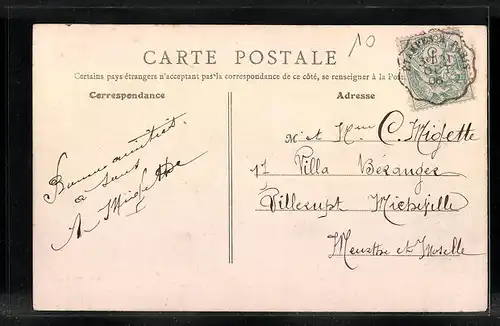 10
CARTE POSTALE
Certains pays étrangers n'acceptant pas la correspondance de ce côté, se renseigner à la Poste
Correspondance
Adresse
Bonne amitiés
à tous
A Migette
M et Mme C. Migette
11 Villa Béranger
Villerupt Micheville
Meurthe et Moselle